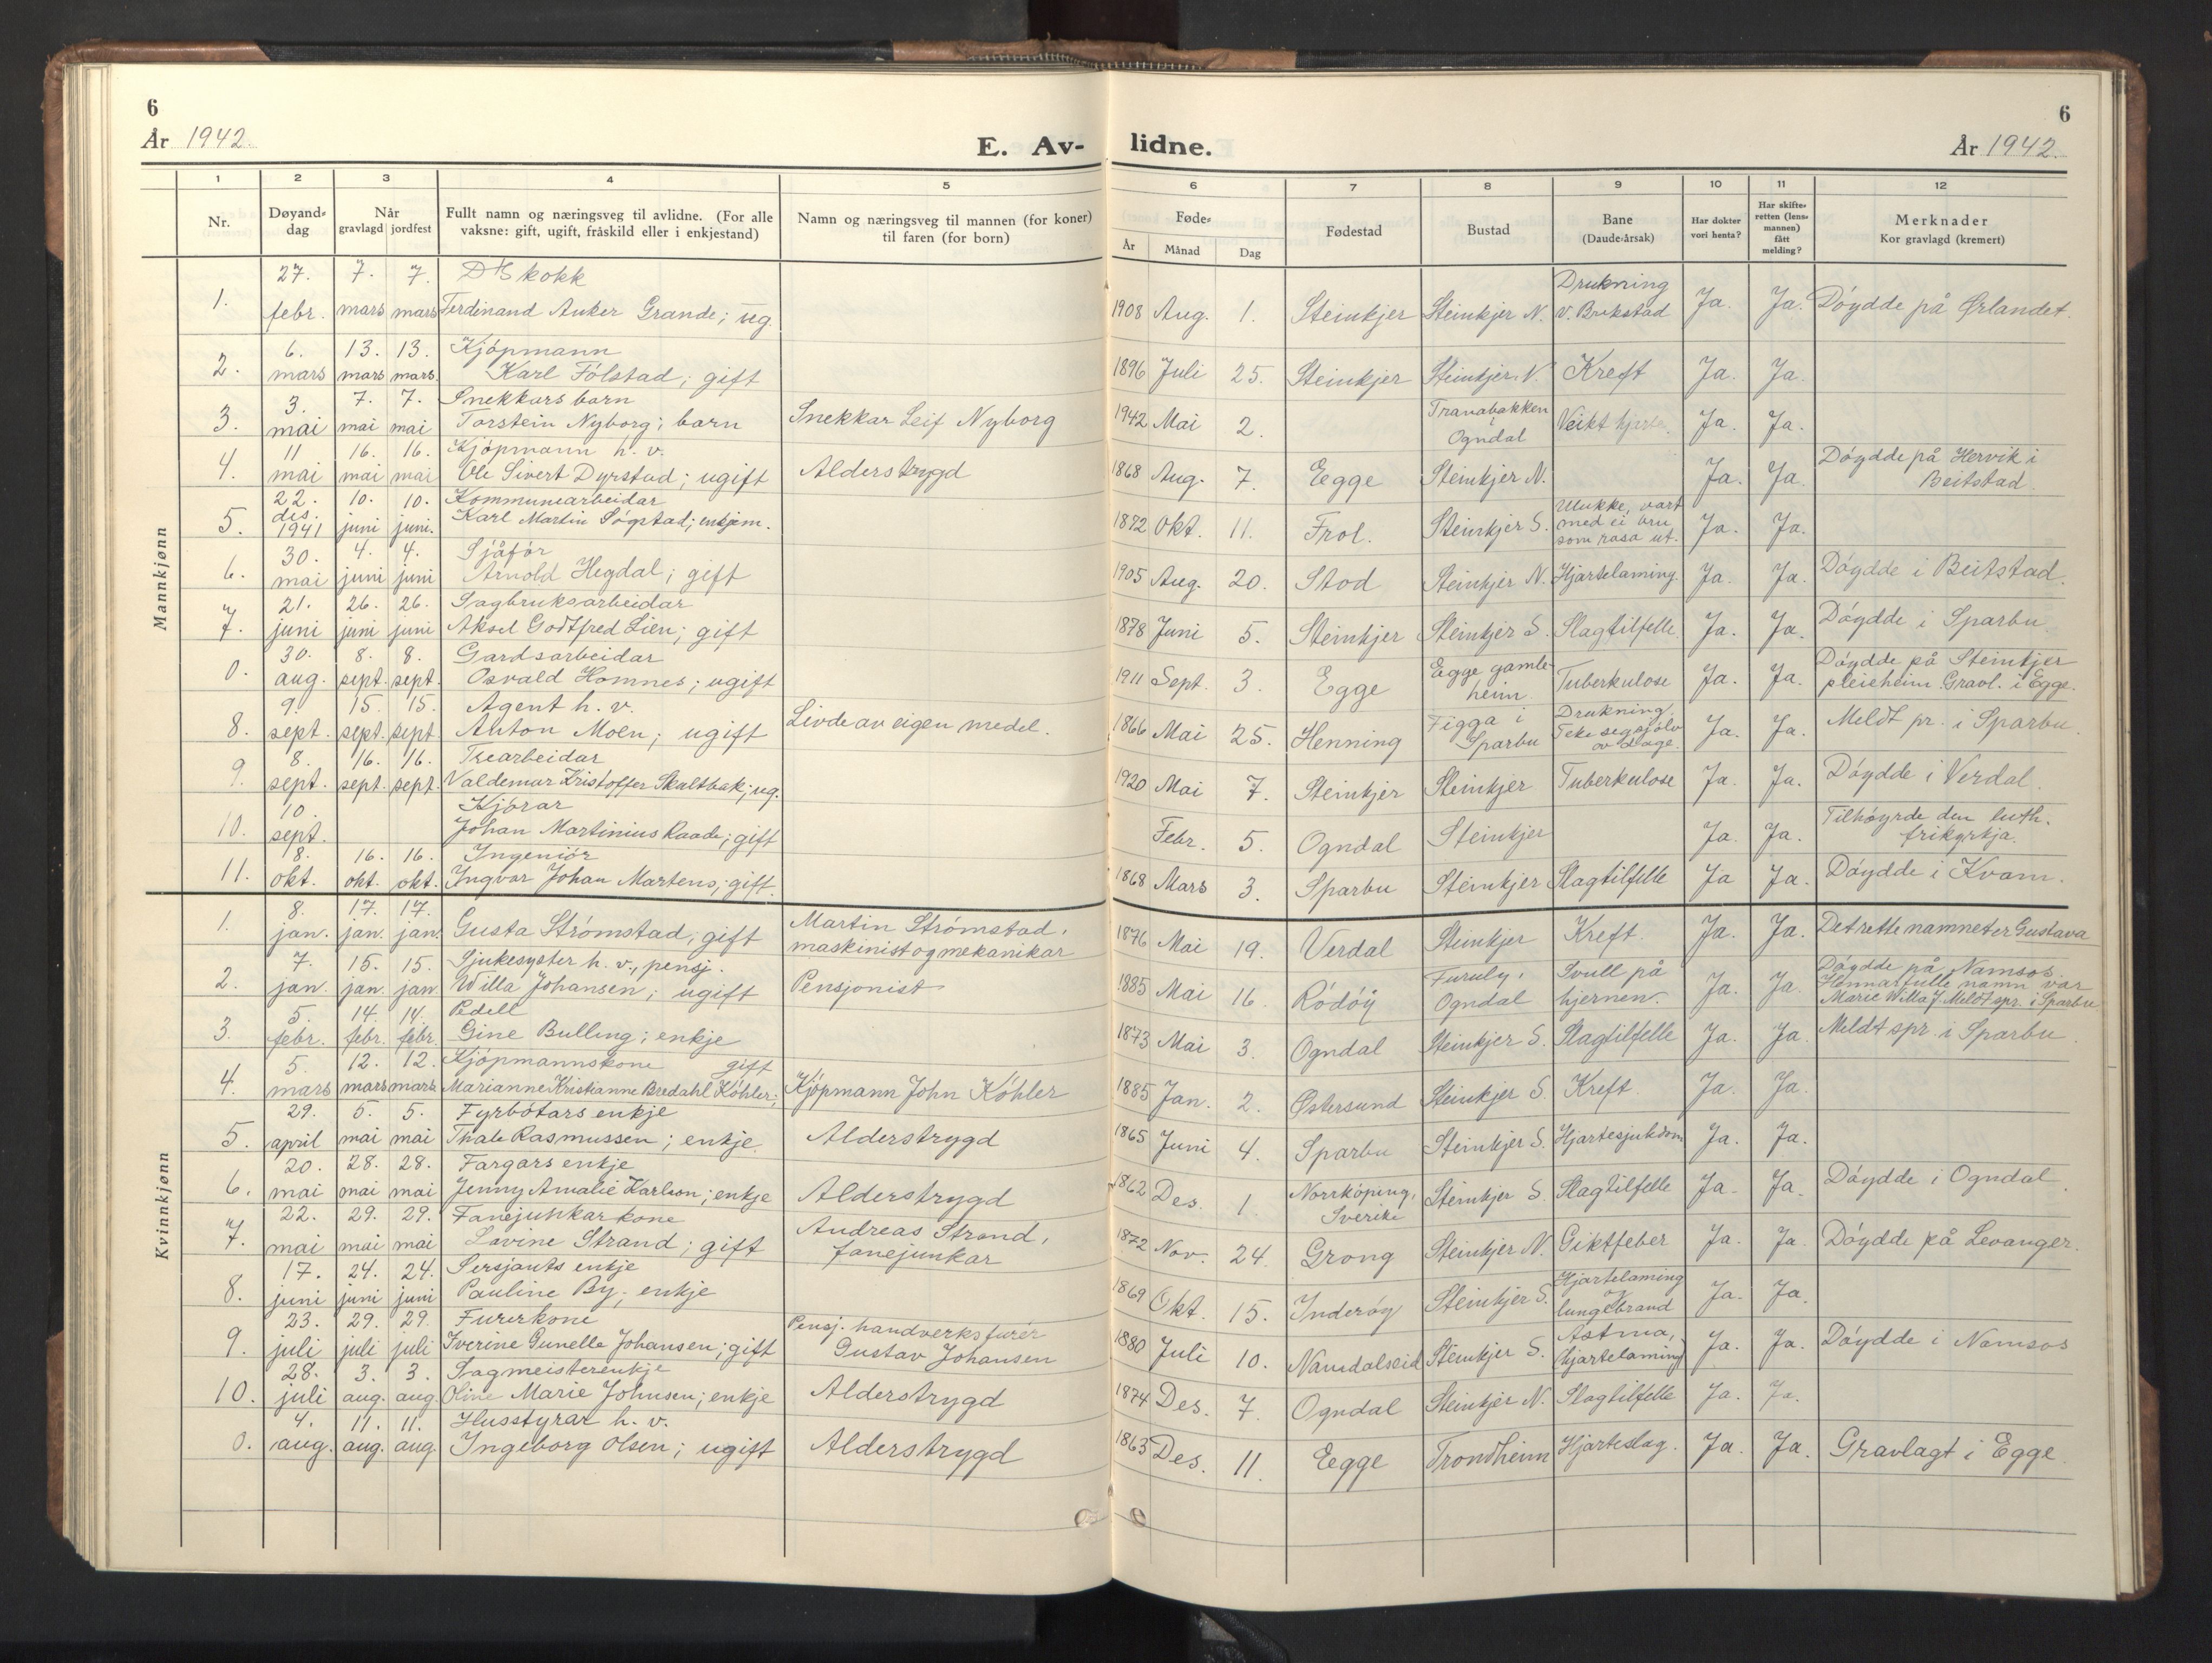 6
År 1942.
E. Av-
1 2 3 4 5
Nr.
Døyand-
dag
Når
gravlagd jordfest
Fullt namn og næringsveg til avlidne. (For alle
vaksne: gift, ugift, fråskild eller i enkjestand)
Namn og næringsveg til mannen (for koner)
til faren (for born)
Mannkjønn
27. 7. 7. D/S kokk
1. febr. mars mars Ferdinand Anker Grande; ug.
6. 13. 13. Kjøpmann
2. mars mars mars. Karl Følstad; gift
3. 7. 7. Snekkars barn
3. mai mai mai Torstein Nyborg; barn Snekkar Leif Nyborg
11 16. 16. Kjøpmann h. v.
4. mai mai mai Ole Sivert Dyrstad; ugift Alderstrygd
22. 10. 10. Kommunearbeidar
5. des. 1941 juni juni. Karl Martin Søgstad; enkjem.
30. 4. 4. Sjåfør
6. mai juni juni Arnold Hegdal; gift
21. 26. 26. Sagbruksarbeidar
7. juni juni juni Aksel Godtfred Lien; gift
30. 8. 8. Gardsarbeidar
0. aug. sept. sept. Osvald Homnes; ugift
9. 15. 15. Agent h. v.
8. sept. sept. sept. Anton Moen; ugift Livde av eigen medel.
8. 16. 16. Trearbeidar
9. sept. sept. sept. Valdemar Kristoffer Skaltbak; ug.
10. Kjørar
10. sept. Johan Martinius Raade; gift
8. 16. 16. Ingeniør
11. okt. okt. okt. Ingvar Johan Martens; gift.
Kvinnkjønn
8. 17. 17. Martin Strømstad,
1. jan. jan. jan. Gusta Strømstad, gift maskinist og mekanikar
7. 15. 15. Sjukesyster h. v., pensj.
2. jan. jan. jan. Willa Johansen; ugift Pensjonist
5. 14. 14. Pedell
3. febr. febr. febr. Gine Bulling; enkje
5. 12. 12. Kjøpmannskone gift
4. mars mars mars Marianne Kristianne Bredahl Köhler; Kjøpmann John Köhler
29. 5. 5. Fyrbøtars enkje
5. april mai mai Thale Rasmussen; enkje Alderstrygd
20. 28. 28. Fargars enkje
6. mai mai mai Jenny Amalie Karlson; enkje Alderstrygd
22. 29. 29. Fanejunkar kone Andreas Strand,
7. mai mai mai Lovine Strand; gift fanejunkar
17. 24. 24. Sersjants enkje
8. juni juni juni Pauline By; enkje
23. 29. 29. Furerkone Pensj. handverksfurér
9. juli juli juli Iverine Gunelle Johansen; gift Gustav Johansen
28. 3. 3. Sagmeisterenkje
10. juli aug. aug. Oline Marie Johnsen; enkje Alderstrygd
4. 11. 11. Husstyrar h. v.
0. aug. aug. aug. Ingeborg Olsen; ugift Alderstrygd
6
lidne.
År 1942.
6 7 8 9 10 11 12
Føde-
År Månad Dag
Fødestad
Bustad
Bane
(Daude-årsak)
Har dokter
vori henta?
Har skifte-
retten (lens-
mannen)
fått
melding?
Merknader
Kor gravlagd (kremert)
Drukning
1908 Aug. 1. Steinkjer Steinkjer N. v. Brekstad Ja. Ja. Døydde på Ørlandet.
1896 Juli 25. Steinkjer Steinkjer N. Kreft Ja. Ja.
Tranabakken,
1942 Mai 2. Ogndal Veikt hjarte. Ja. Ja.
Døydde på Hervik i
1868 Aug. 7. Egge Steinkjer N. Ja. Ja. Beitstad.
Ulukke, vart
1872 Okt. 11. Frol. Steinkjer S. med ei bru Ja. Ja.
som rasa ut.
1905 Aug. 20. Stod Steinkjer N. Hjartelaming. Ja. Ja. Døydde i Beitstad.
1878 Juni 5. Steinkjer Steinkjer S. Slagtilfelle Ja. Ja. Døydde i Sparbu.
Egge gamle- Døydde på Steinkjer
1911 Sept. 3. Egge heim. Tuberkulose Ja. Ja. pleieheim. Gravl. i Egge.
Figga i Drukning.
1866 Mai 25. Henning Sparbu Teke seg sjølv av dage. Ja. Ja. Meldt pr. i Sparbu.
1920 Mai 7. Steinkjer Steinkjer Tuberkulose Ja. Ja. Døydde i Verdal.
Tilhøyrde den luth.
Febr. 5. Ogndal Steinkjer Ja. Ja. frikyrkja.
1868 Mars 3. Sparbu Steinkjer Slagtilfelle Ja Ja. Døydde i Kvam.
1876 Mai 19. Verdal Steinkjer Kreft. Ja. Ja. Det rette namnet er Gustava
Furuly, Svull på Døydde på Namsos.
1885 Mai 16. Rødøy Ogndal hjernen. Ja. Ja. Hennar fulle namn var
Marie Willa J. Meldt spr. i Sparbu
1873 Mai 3. Ogndal Steinkjer S. Slagtilfelle Ja. Ja. Meldt spr. i Sparbu.
1885 Jan. 2. Østersund Steinkjer S. Kreft. Ja. Ja.
1865 Juni 4. Sparbu Steinkjer S. Hjartesjukdom Ja. Ja.
Norrköping,
1862 Des. 1. Sverike Steinkjer S. Slagtilfelle Ja. Ja. Døydde i Ogndal.
1872 Nov. 24. Grong Steinkjer N. Giktfeber Ja. Ja. Døydde på Levanger.
Hjartelaming
1869 Okt. 15. Inderøy Steinkjer S. og Ja. Ja.
lungebrand
Astma,
1880 Juli 10. Namdalseid Steinkjer S. (hjartelaming) Ja. Ja. Døydde i Namsos
1874 Des. 7. Ogndal Steinkjer N. Slagtilfelle Ja. Ja.
1863 Des. 11. Egge Trondheim Hjarteslag. Ja. Ja. Gravlagt i Egge.